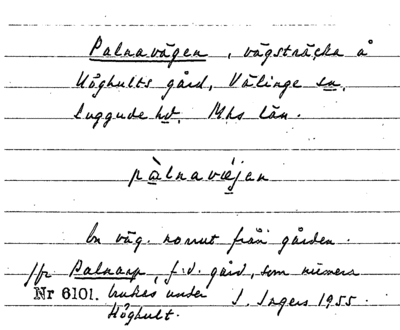 Palnavägen, vägsträcka å
Höghults gård, Välinge sn,
Luggude hd. Mhs län.
pàlnavæjen
En väg norrut från gården.
Jfr Palnarp, f.d. gård, som numera
Nr 6101. brukas under J. Ingers 1955.
Höghult.